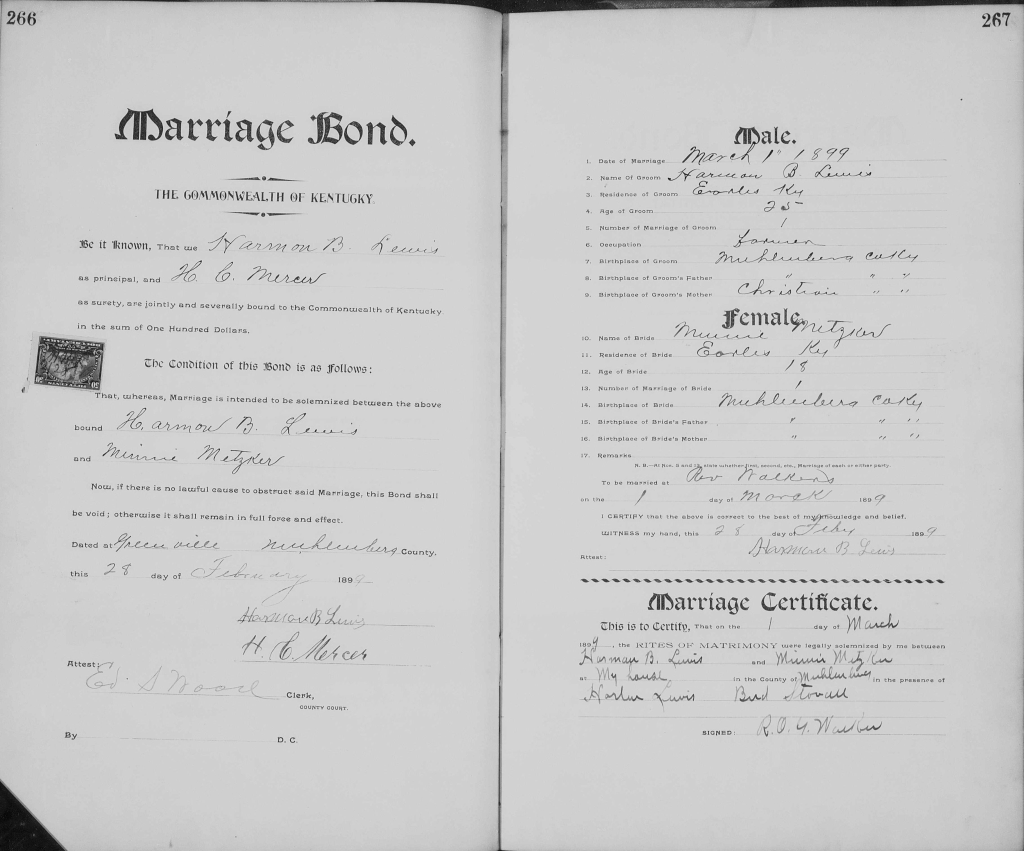 266
Marriage Bond.
THE COMMONWEALTH OF KENTUCKY.
Be it Known, That we Harmon B. Lewis
as principal, and H. C. Mercer
as surety, are jointly and severally bound to the Commonwealth of Kentucky
in the sum of One Hundred Dollars.
The Condition of this Bond is as Follows:
That, whereas, Marriage is intended to be solemnized between the above
bound Harmon B. Lewis
and Minnie Metzker
Now, if there is no lawful cause to obstruct said Marriage, this Bond shall
be void; otherwise it shall remain in full force and effect.
Dated at Greenville Muhlenberg County,
this 28 day of February 1899
Harmon B Lewis
H. C. Mercer
Attest:
Ed. S Wood Clerk,
COUNTY COURT.
By D. C.
267
Male.
1. Date of Marriage March 1" 1899
2. Name Of Groom Harmon B. Lewis
3. Residence of Groom Earles Ky
4. Age of Groom 25
5. Number of Marriage of Groom 1
6. Occupation farmer
7. Birthplace of Groom Muhlenberg Co Ky
8. Birthplace of Groom's Father " " "
9. Birthplace of Groom's Mother Christian " "
Female.
10. Name of Bride Minnie Metzker
11. Residence of Bride Earles Ky
12. Age of Bride 18
13. Number of Marriage of Bride 1
14. Birthplace of Bride Muhlenberg Co Ky
15. Birthplace of Bride's Father " " "
16. Birthplace of Bride's Mother " " "
17. Remarks
N. B.—At Nos. 5 and 13, state whether first, second, etc., Marriage of each or either party.
To be married at Rev Walkers
on the 1 day of March 1899
I CERTIFY that the above is correct to the best of my knowledge and belief.
WITNESS my hand, this 28 day of Feby 1899
Harmon B Lewis
Attest:
Marriage Certificate.
This is to Certify, That on the 1 day of March
1899, the RITES OF MATRIMONY were legally solemnized by me between
Harman B. Lewis and Minnie Metzker
at My house, in the County of Muhlenberg in the presence of
Harlan Lewis Bud Stovall
SIGNED: R. O. G. Walker